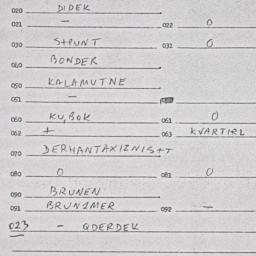 020 DIDEK
021 — 022 0
030 S+PUNT 031 0
040 BONDER
050 KALAMUTNE
051 —
060 KU, BOK 061 0
062 + 063 KVARTIRL
070 DERHANTAXIZNIS++
080 0 081 0
090 BRUNEN
091 BRUNIMER 092 —
023 — QDERDEK